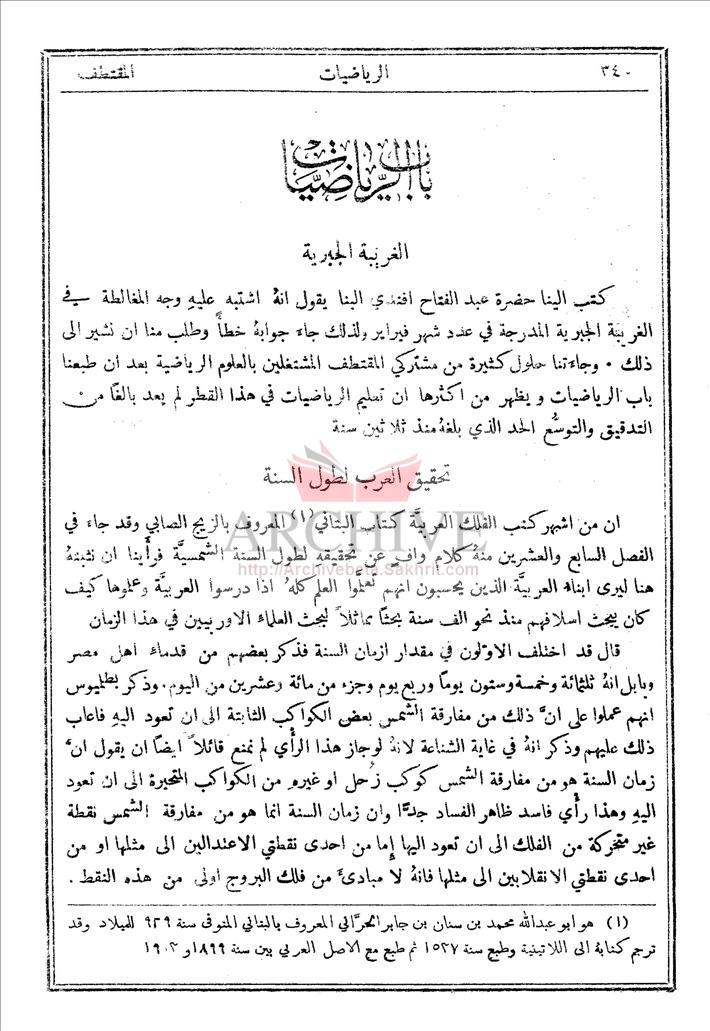 ٣٤٠ الرياضيات المقتطف
باب الرياضيات
الغريبة الجبرية
كتب الينا حضرة عبد الفتاح افندي البنا يقول انهُ اشتبه عليهِ وجه المغالطة في
الغريبة الجبرية المدرجة في عدد شهر فبراير ولذلك جاءَ جوابهُ خطأً وطلب منا ان نشير الى
ذلك . وجاءَتنا حلول كثيرة من مشتركي المقتطف المشتغلين بالعلوم الرياضية بعد ان طبعنا
باب الرياضيات ويظهر من اكثرها ان تعليم الرياضيات في هذا القطر لم يعد بالغًا من
التدقيق والتوسُّع الحد الذي بلغهُ منذ ثلاثين سنة
تحقيق العرب لطول السنة
ان من اشهر كتب الفلك العربيَّة كتاب البتاني(١) المعروف بالزيج الصابي وقد جاء في
الفصل السابع والعشرين منهُ كلام وافٍ عن تحقيقه لطول السنة الشمسيَّة فرأينا ان نثبتهُ
هنا ليرى ابناء العربيَّة الذين يحسبون انهم تعلموا العلم كلهُ اذا درسوا العربيَّة وعلومها كيف
كان يبحث اسلافهم منذ نحو الف سنة بحثًا مماثلاً لبحث العلماء الاوربيين في هذا الزمان
قال قد اختلف الاوَّلون في مقدار ازمان السنة فذكر بعضهم من قدماء اهل مصر
وبابل انهُ ثلثمائة وخمسة وستون يومًا وربع يوم وجزء من مائة وعشرين من اليوم. وذكر بطلميوس
انهم عملوا على انَّ ذلك من مفارقة الشمس بعض الكواكب الثابتة الى ان تعود اليهِ فاعاب
ذلك عليهم وذكر انهُ في غاية الشناعة لانهُ لو جاز هذا الرأي لم نمنع قائلاً ايضًا ان يقول انَّ
زمان السنة هو من مفارقة الشمس كوكب زُحل او غيرهِ من الكواكب المتحيرة الى ان تعود
اليهِ وهذا رأي فاسد ظاهر الفساد جدًّا وان زمان السنة انما هو من مفارقة الشمس نقطة
غير متحركة من الفلك الى ان تعود اليها إما من احدى نقطتي الاعتدالين الى مثلها او من
احدى نقطتي الانقلابين الى مثلها فانهُ لا مبادئَ من فلك البروج اولى من هذه النقط .
(١) هو ابو عبدالله محمد بن سنان بن جابر الحرَّاني المعروف بالبتاني المتوفى سنة ٩٢٩ للميلاد وقد
ترجم كتابهُ الى اللاتينية وطبع سنة ١٥٣٧ ثم طبع مع الاصل العربي بين سنة ١٨٩٩ و ١٩٠٣
ARCHIVE
http://Archivebeta.Sakhrit.com